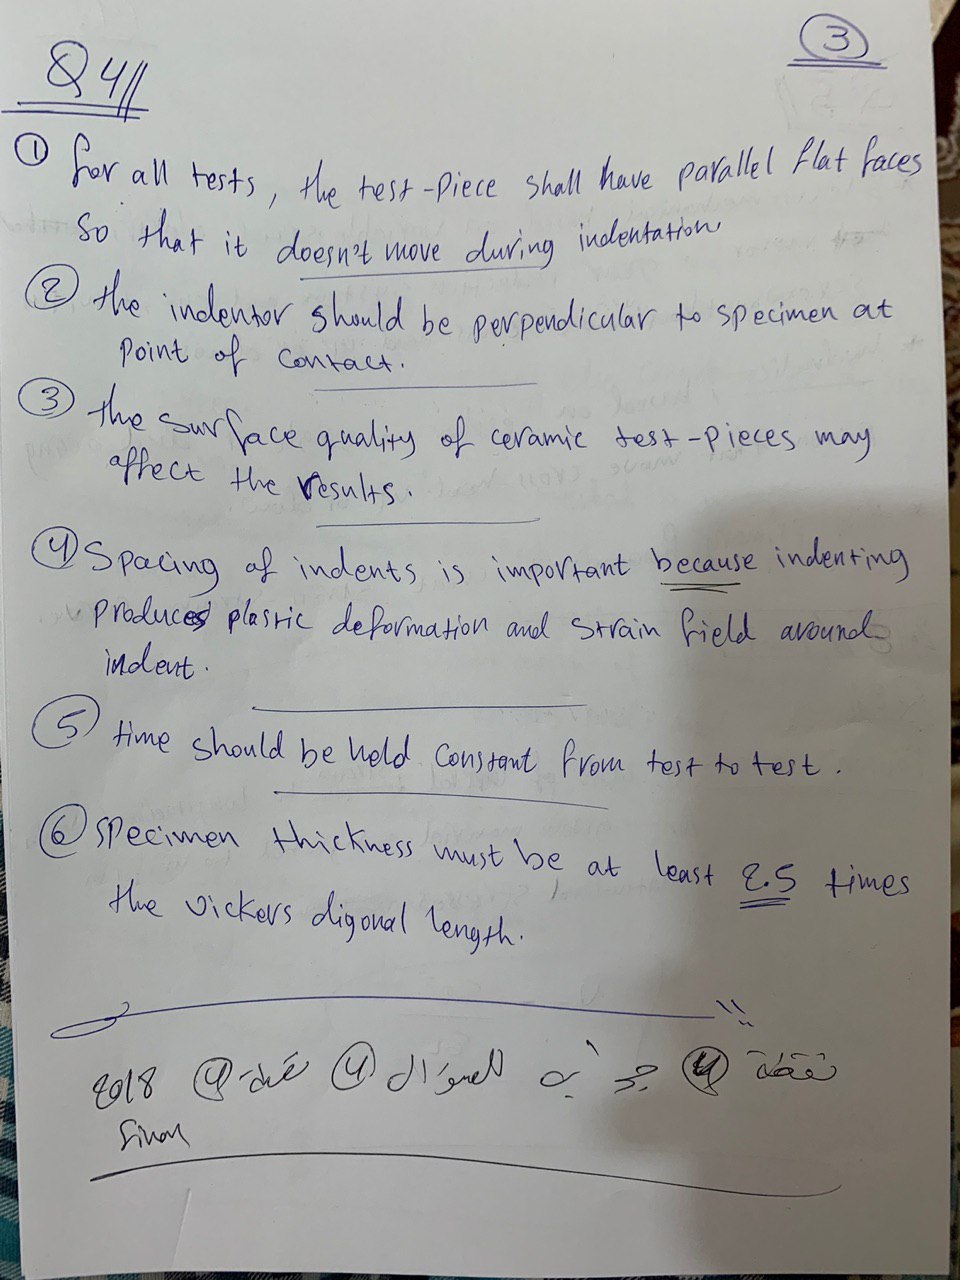 3
Q4//
① for all tests, the test-piece shall have parallel flat faces
so that it doesn't move during indentation
② the indentor should be perpendicular to specimen at
point of contact.
③ the surface quality of ceramic test-pieces may
affect the results.
④ Spacing of indents is important because indenting
produces plastic deformation and strain field around
indent.
⑤ time should be held constant from test to test.
⑥ specimen thickness must be at least 2.5 times
the vickers digonal length.
نقطة ④ السؤال ④ نقطة ④ 2018
final